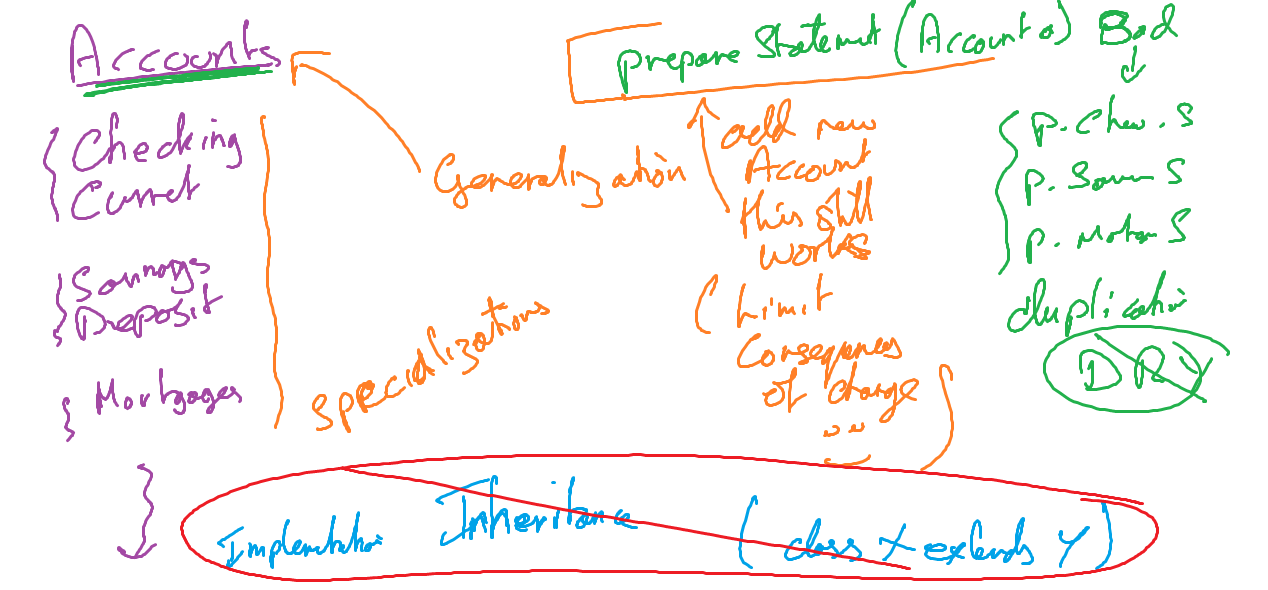 Accounts
Checking
Curret
Savings
Deposit
Mortgages
Generalization
Specializations
prepare Statemet (Account a)
add new
Account
this still
works
Limit
Conseqences
of change
Bad
P. Chec. S
P. Savin S
P. Mortga S
duplication
DRY
Implemtation Inheritance (class X extends Y)